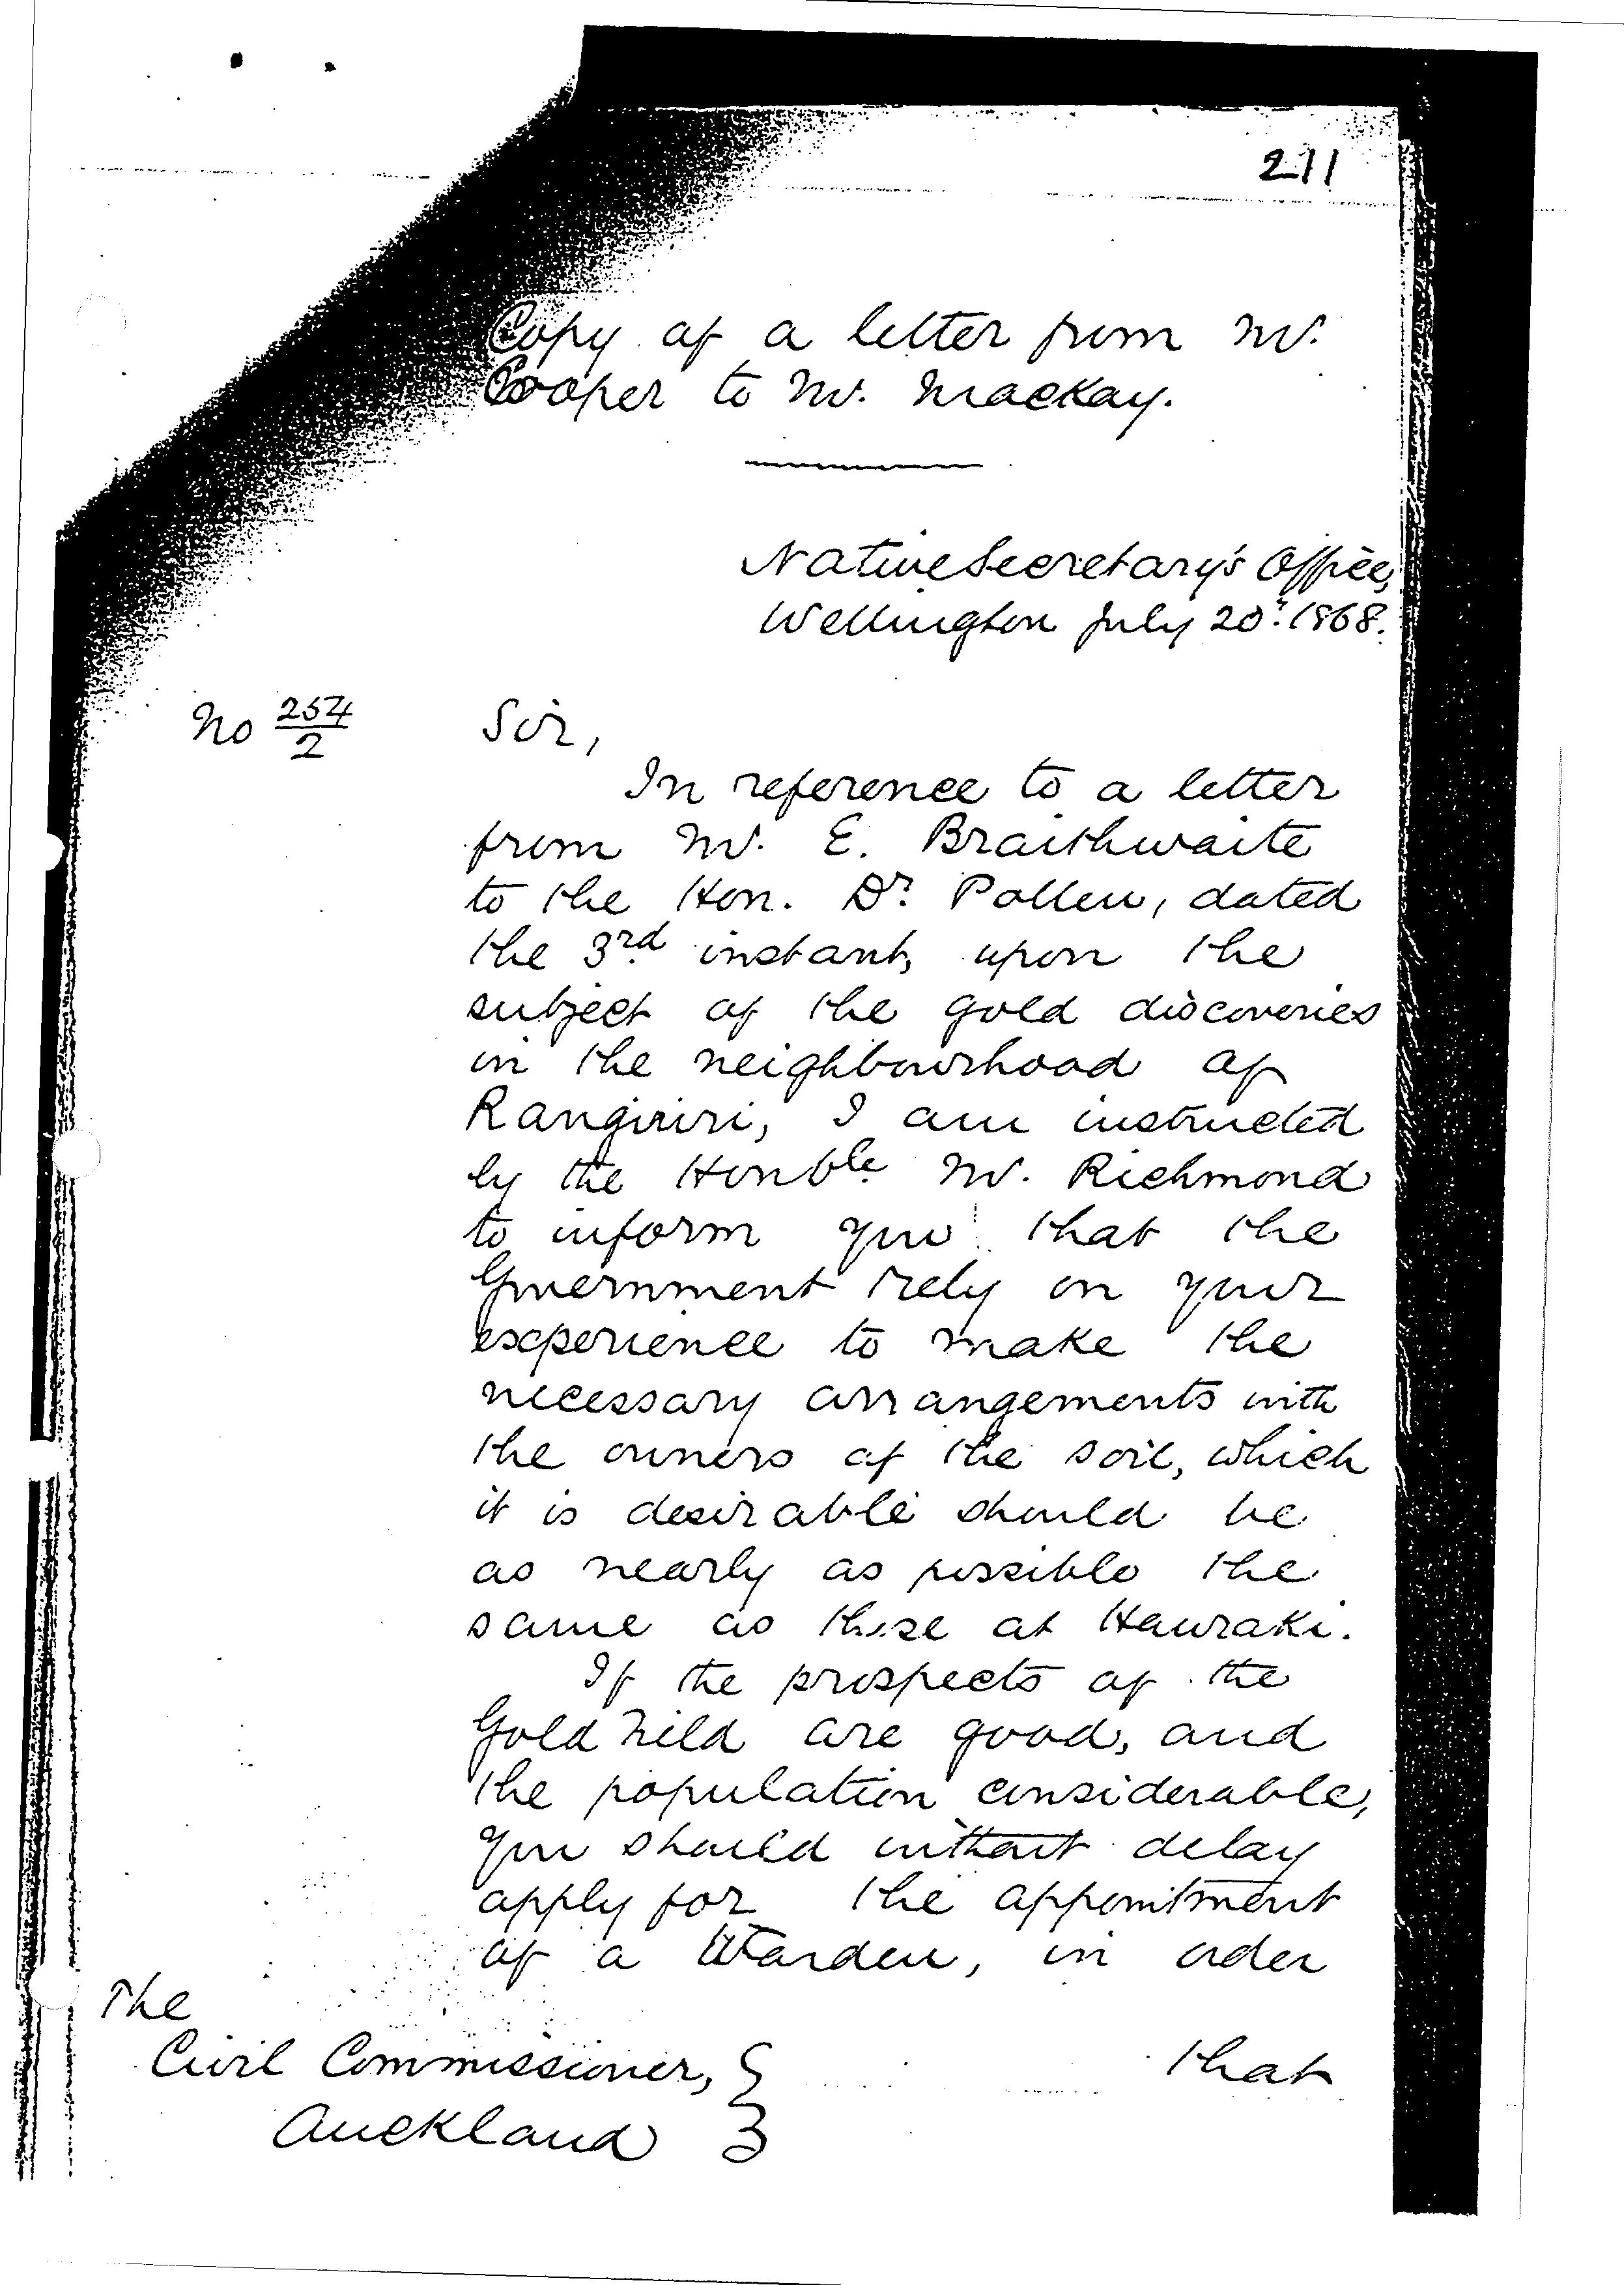 211
Copy of a letter from Mr.
Cooper to Mr. Mackay.
Native Secretary's Office,
Wellington July 20th. 1868.
No 254/2
Sir,
In reference to a letter
from Mr. E. Braithwaite
to the Hon. Dr. Pollen, dated
the 3rd instant, upon the
subject of the gold discoveries
in the neighbourhood of
Rangiriri, I am instructed
by the Honble. Mr. Richmond
to inform you that the
Government rely on your
experience to make the
necessary arrangements with
the owners of the soil, which
it is desirable should be
as nearly as possible the
same as those at Hauraki.
If the prospects of the
Gold Field are good, and
the population considerable,
you should without delay
apply for the appointment
of a Warden, in order
that
The
Civil Commissioner,
Auckland